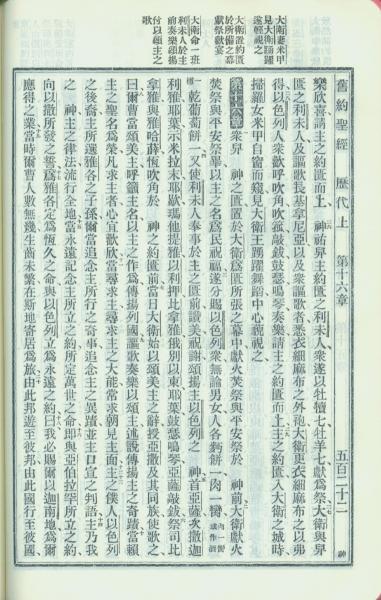 舊約聖經 歷代上 第十六章 五百二十二 神
大衛妻米甲
見大衛踴躍
遂輕視之
大衛置約匱
於所備之幕
獻祭獻宴
大衛命一班
利未人於主
前奏樂頌揚
付以頌主之
歌
樂欣喜請主之約匱而上 神祐舁主約匱之利未人衆遂以牡犢七牡羊七獻爲祭大衛與舁
匱之利未人及謳歌長基拿尼亞以及衆謳歌者悉衣細麻布之外袍大衛更衣細麻布之以弗
得以色列人衆歡呼吹角吹號敲鈸鼓瑟鳴琴奏樂請主之約匱而上主之約匱入大衛之城時
掃羅女米甲自窗而窺見大衛王踴躍舞蹈中心藐視之
第十六章 衆舁 神之匱置於大衛爲匱所張之幕中獻火焚祭與平安祭於 神前大衛獻火
焚祭與平安祭畢以主之名爲民祝福遂分賜以色列衆無論男女人各餅一肉一臠
乾葡萄餅一又使利未人奉事於主之匱前讚美祝謝頌揚主以色列之 神首亞薩次撒迦
利雅耶葉示米拉末耶歇瑪他提雅以利押比拿雅俄別以東耶葉鼓瑟鳴琴亞薩敲鈸祭司比
拿雅與雅哈薛恆吹角於 神之約匱前當日大衛始以頌美主之辭授亞撒及其同族使歌之
曰爾曹當頌美主呼籲主名以主之作爲傳揚列國謳歌奏樂以頌主述說傳揚主之奇蹟當賴
主之聖名爲榮凡求主者心宜歡欣當尋求主尋求主之大能常求朝見主面主之僕人以色列
之後裔主所選雅各之子孫爾當追念主所行之奇事追念主之異蹟並主口宣之判語主乃我
之 神主之律法流行全地當永遠記念主所立之約所定萬世之命卽與亞伯拉罕所立之約
向以撒所發之誓爲雅各定爲恆久之命與以色列立爲永遠之約曰我必賜爾以迦南地爲爾
應得之業當時爾曹人數無幾生齒未繁在斯地寄居爲旅由此邦遊至彼邦由此國行至彼國